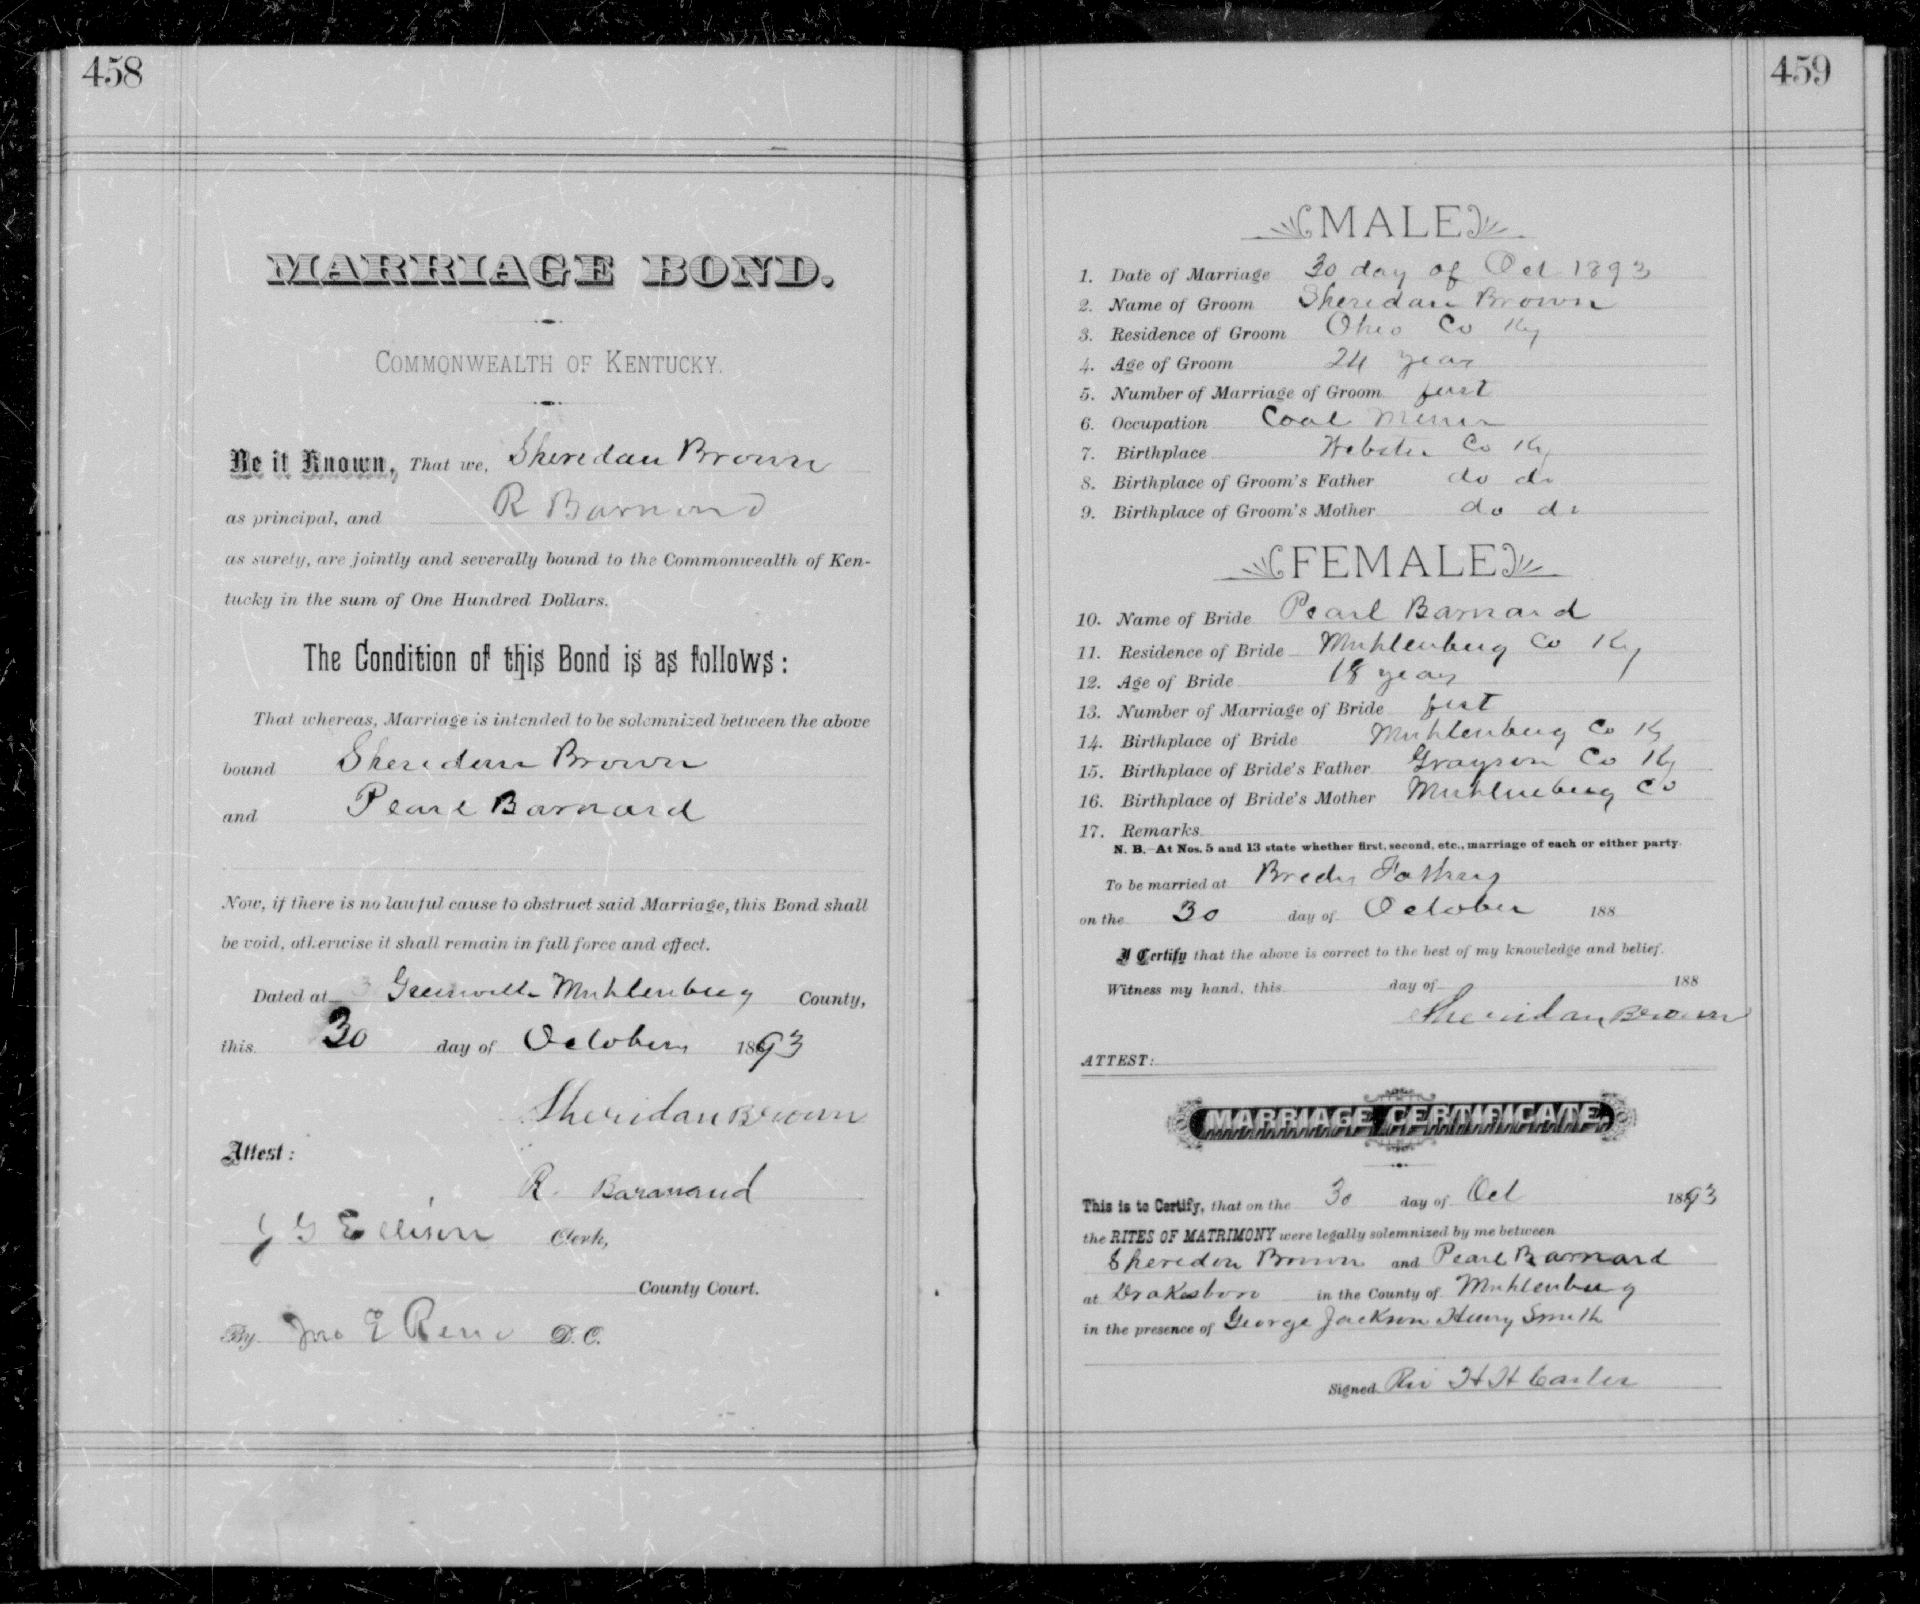 458
MARRIAGE BOND.
COMMONWEALTH OF KENTUCKY.
Be it Known, That we, Sheridan Brown
as principal, and R Barnard
as surety, are jointly and severally bound to the Commonwealth of Ken-
tucky in the sum of One Hundred Dollars.
The Condition of this Bond is as follows:
That whereas, Marriage is intended to be solemnized between the above
bound Sheridan Brown
and Pearl Barnard
Now, if there is no lawful cause to obstruct said Marriage, this Bond shall
be void, otherwise it shall remain in full force and effect.
Dated at Greenville Muhlenberg County,
this 30 day of October 1893
Sheridan Brown
Attest:
R. Baranard
J G Ellison Clerk,
County Court.
By Jno E Reno D. C.
459
MALE
1. Date of Marriage 30 day of Oct 1893
2. Name of Groom Sheridan Brown
3. Residence of Groom Ohio Co Ky
4. Age of Groom 24 years
5. Number of Marriage of Groom first
6. Occupation Coal Miner
7. Birthplace Webster Co Ky
8. Birthplace of Groom's Father do do
9. Birthplace of Groom's Mother do do
FEMALE
10. Name of Bride Pearl Barnard
11. Residence of Bride Muhlenberg Co Ky
12. Age of Bride 18 years
13. Number of Marriage of Bride first
14. Birthplace of Bride Muhlenberg Co Ky
15. Birthplace of Bride's Father Grayson Co Ky
16. Birthplace of Bride's Mother Muhlenberg Co
17. Remarks
N. B.—At Nos. 5 and 13 state whether first, second, etc., marriage of each or either party.
To be married at Brides Fathers
on the 30 day of October 188
I Certify that the above is correct to the best of my knowledge and belief.
Witness my hand, this day of 188
Sheridan Brown
ATTEST:
MARRIAGE CERTIFICATE.
This is to Certify, that on the 30 day of Oct 1893
the RITES OF MATRIMONY were legally solemnized by me between
Sheridon Brown and Pearl Barnard
at Drakesboro in the County of Muhlenberg
in the presence of George Jackson Henry Smith
Signed Rev H H Carter